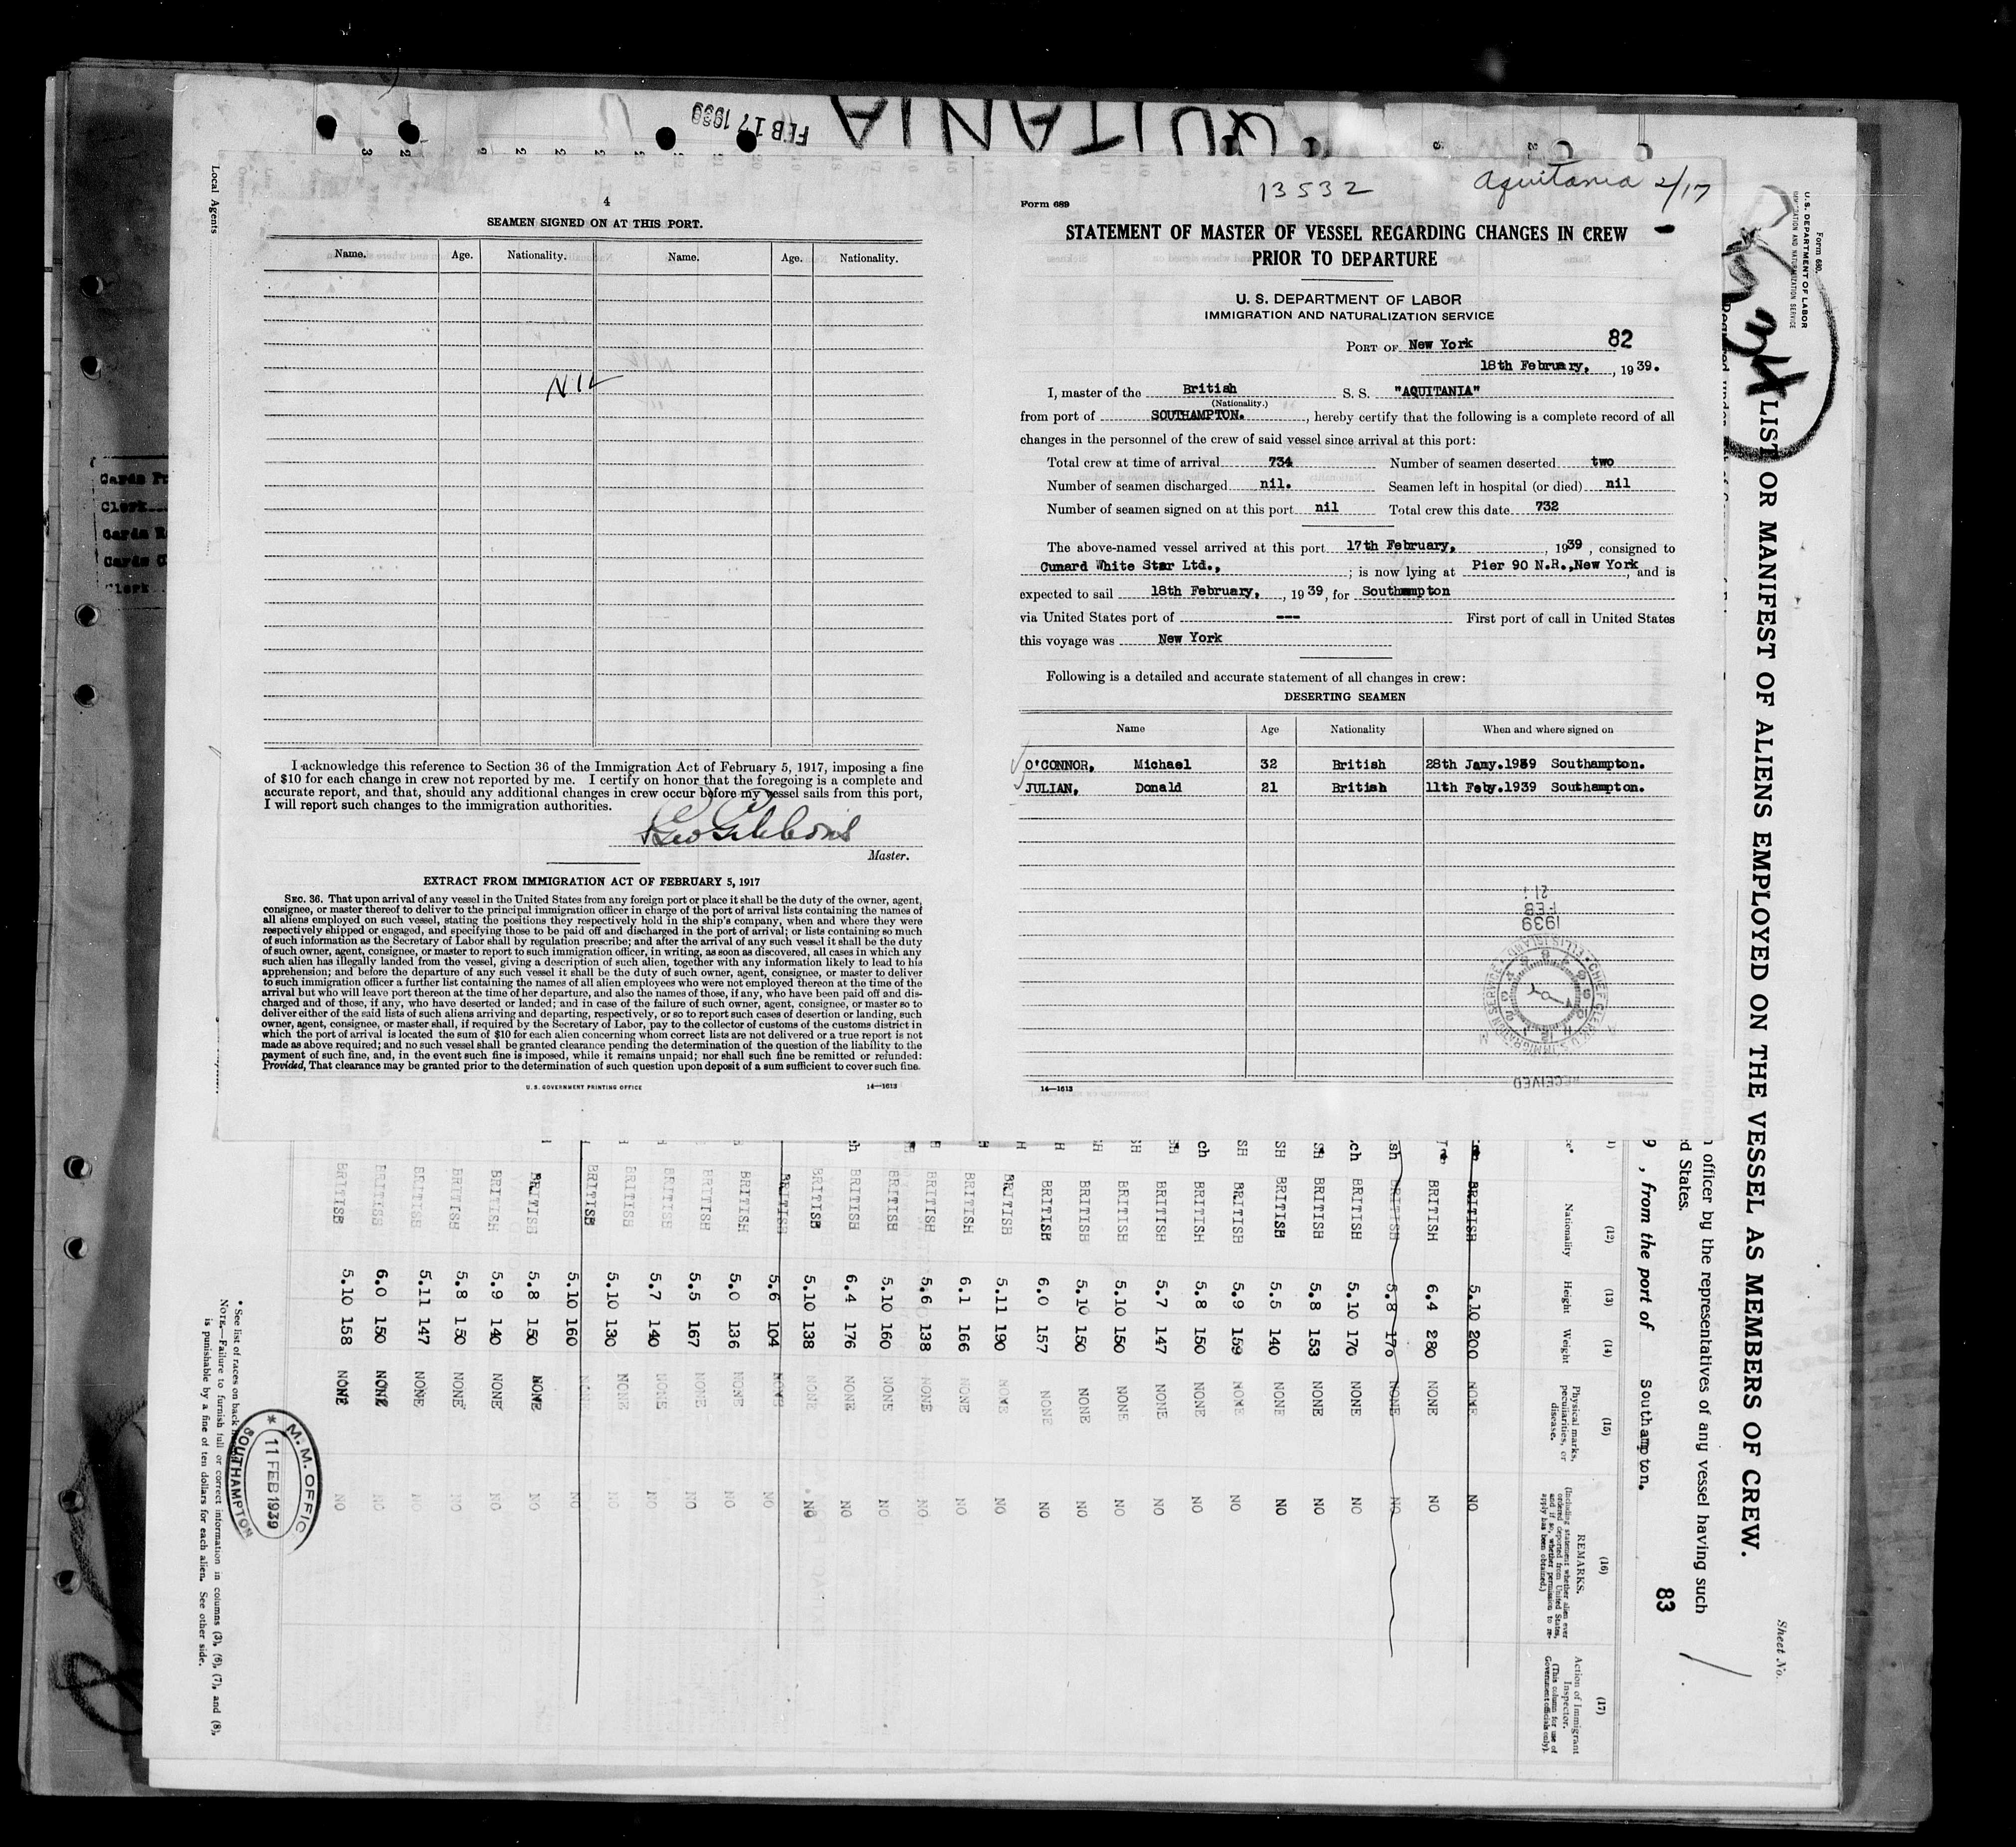 AQUITANIA
FEB 17 1939
13532
Aquitania 2/17
Local Agents
4
SEAMEN SIGNED ON AT THIS PORT.
Name. Age. Nationality. Name. Age. Nationality.
NIL
I acknowledge this reference to Section 36 of the Immigration Act of February 5, 1917, imposing a fine
of $10 for each change in crew not reported by me. I certify on honor that the foregoing is a complete and
accurate report, and that, should any additional changes in crew occur before my vessel sails from this port,
I will report such changes to the immigration authorities.
Geo Gibbons
Master.
EXTRACT FROM IMMIGRATION ACT OF FEBRUARY 5, 1917
SEC. 36. That upon arrival of any vessel in the United States from any foreign port or place it shall be the duty of the owner, agent,
consignee, or master thereof to deliver to the principal immigration officer in charge of the port of arrival lists containing the names of
all aliens employed on such vessel, stating the positions they respectively hold in the ship's company, when and where they were
respectively shipped or engaged, and specifying those to be paid off and discharged in the port of arrival; or lists containing so much
of such information as the Secretary of Labor shall by regulation prescribe; and after the arrival of any such vessel it shall be the duty
of such owner, agent, consignee, or master to report to such immigration officer, in writing, as soon as discovered, all cases in which any
such alien has illegally landed from the vessel, giving a description of such alien, together with any information likely to lead to his
apprehension; and before the departure of any such vessel it shall be the duty of such owner, agent, consignee, or master to deliver
to such immigration officer a further list containing the names of all alien employees who were not employed thereon at the time of the
arrival but who will leave port thereon at the time of her departure, and also the names of those, if any, who have been paid off and dis-
charged and of those, if any, who have deserted or landed; and in case of the failure of such owner, agent, consignee, or master so to
deliver either of the said lists of such aliens arriving and departing, respectively, or so to report such cases of desertion or landing, such
owner, agent, consignee, or master shall, if required by the Secretary of Labor, pay to the collector of customs of the customs district in
which the port of arrival is located the sum of $10 for each alien concerning whom correct lists are not delivered or a true report is not
made as above required; and no such vessel shall be granted clearance pending the determination of the question of the liability to the
payment of such fine, and, in the event such fine is imposed, while it remains unpaid; nor shall such fine be remitted or refunded:
Provided, That clearance may be granted prior to the determination of such question upon deposit of a sum sufficient to cover such fine.
U. S. GOVERNMENT PRINTING OFFICE 14—1613
Form 689
STATEMENT OF MASTER OF VESSEL REGARDING CHANGES IN CREW
PRIOR TO DEPARTURE
U. S. DEPARTMENT OF LABOR
IMMIGRATION AND NATURALIZATION SERVICE
PORT OF New York 82
18th February, , 19 39.
I, master of the British S. S. "AQUITANIA"
(Nationality.)
from port of SOUTHAMPTON. , hereby certify that the following is a complete record of all
changes in the personnel of the crew of said vessel since arrival at this port:
Total crew at time of arrival 734 Number of seamen deserted two
Number of seamen discharged nil. Seamen left in hospital (or died) nil
Number of seamen signed on at this port nil Total crew this date 732
The above-named vessel arrived at this port 17th February, , 1939 , consigned to
Cunard White Star Ltd., ; is now lying at Pier 90 N.R.,New York , and is
expected to sail 18th February, , 19 39, for Southampton
via United States port of --- First port of call in United States
this voyage was New York
Following is a detailed and accurate statement of all changes in crew:
DESERTING SEAMEN
Name Age Nationality When and where signed on
O'CONNOR, Michael 32 British 28th Jany.1939 Southampton.
JULIAN, Donald 21 British 11th Feby.1939 Southampton.
1939
FEB
21
CHIEF CLERK, U.S. IMMIGRATION SERVICE, ELLIS ISLAND
RECEIVED
14—1613
Form 680.
U.S. DEPARTMENT OF LABOR
IMMIGRATION AND NATURALIZATION SERVICE
34
LIST OR MANIFEST OF ALIENS EMPLOYED ON THE VESSEL AS MEMBERS OF CREW.
Sheet No.
officer by the representatives of any vessel having such
d States.
83
9 , from the port of Southampton.
(12) (13) (14) (15) (16) (17)
Nationality Height Weight
Physical marks, peculiarities, or disease.
REMARKS.
(Including statement whether alien ever ordered deported from United States, and if so, whether permission to reapply has been obtained.)
Action of Immigrant Inspector.
(This column for use of Government officials only).
BRITISH 5.10 200 NONE NO
BRITISH 6.4 280 NONE NO
BRITISH 5.8 170 NONE NO
BRITISH 5.10 170 NONE NO
BRITISH 5.8 153 NONE NO
BRITISH 5.5 140 NONE NO
BRITISH 5.9 159 NONE NO
BRITISH 5.8 150 NONE NO
BRITISH 5.7 147 NONE NO
BRITISH 5.10 150 NONE NO
BRITISH 5.10 150 NONE NO
BRITISH 6.0 157 NONE NO
BRITISH 5.11 190 NONE NO
BRITISH 6.1 166 NONE NO
BRITISH 5.6 138 NONE NO
BRITISH 5.10 160 NONE NO
BRITISH 6.4 176 NONE NO
BRITISH 5.10 138 NONE NO
BRITISH 5.6 104 NONE NO
BRITISH 5.0 136 NONE NO
BRITISH 5.5 167 NONE NO
BRITISH 5.7 140 NONE NO
BRITISH 5.10 130 NONE NO
BRITISH 5.10 160 NONE NO
BRITISH 5.8 150 NONE NO
BRITISH 5.9 140 NONE NO
BRITISH 5.8 150 NONE NO
BRITISH 5.11 147 NONE NO
BRITISH 6.0 150 NONE NO
BRITISH 5.10 158 NONE NO
* See list of races on back
NOTE.—Failure to furnish full or correct information in columns (3), (6), (7), and (8),
is punishable by a fine of ten dollars for each alien. See other side.
M.M. OFFIC
11 FEB 1939
SOUTHAMPTON